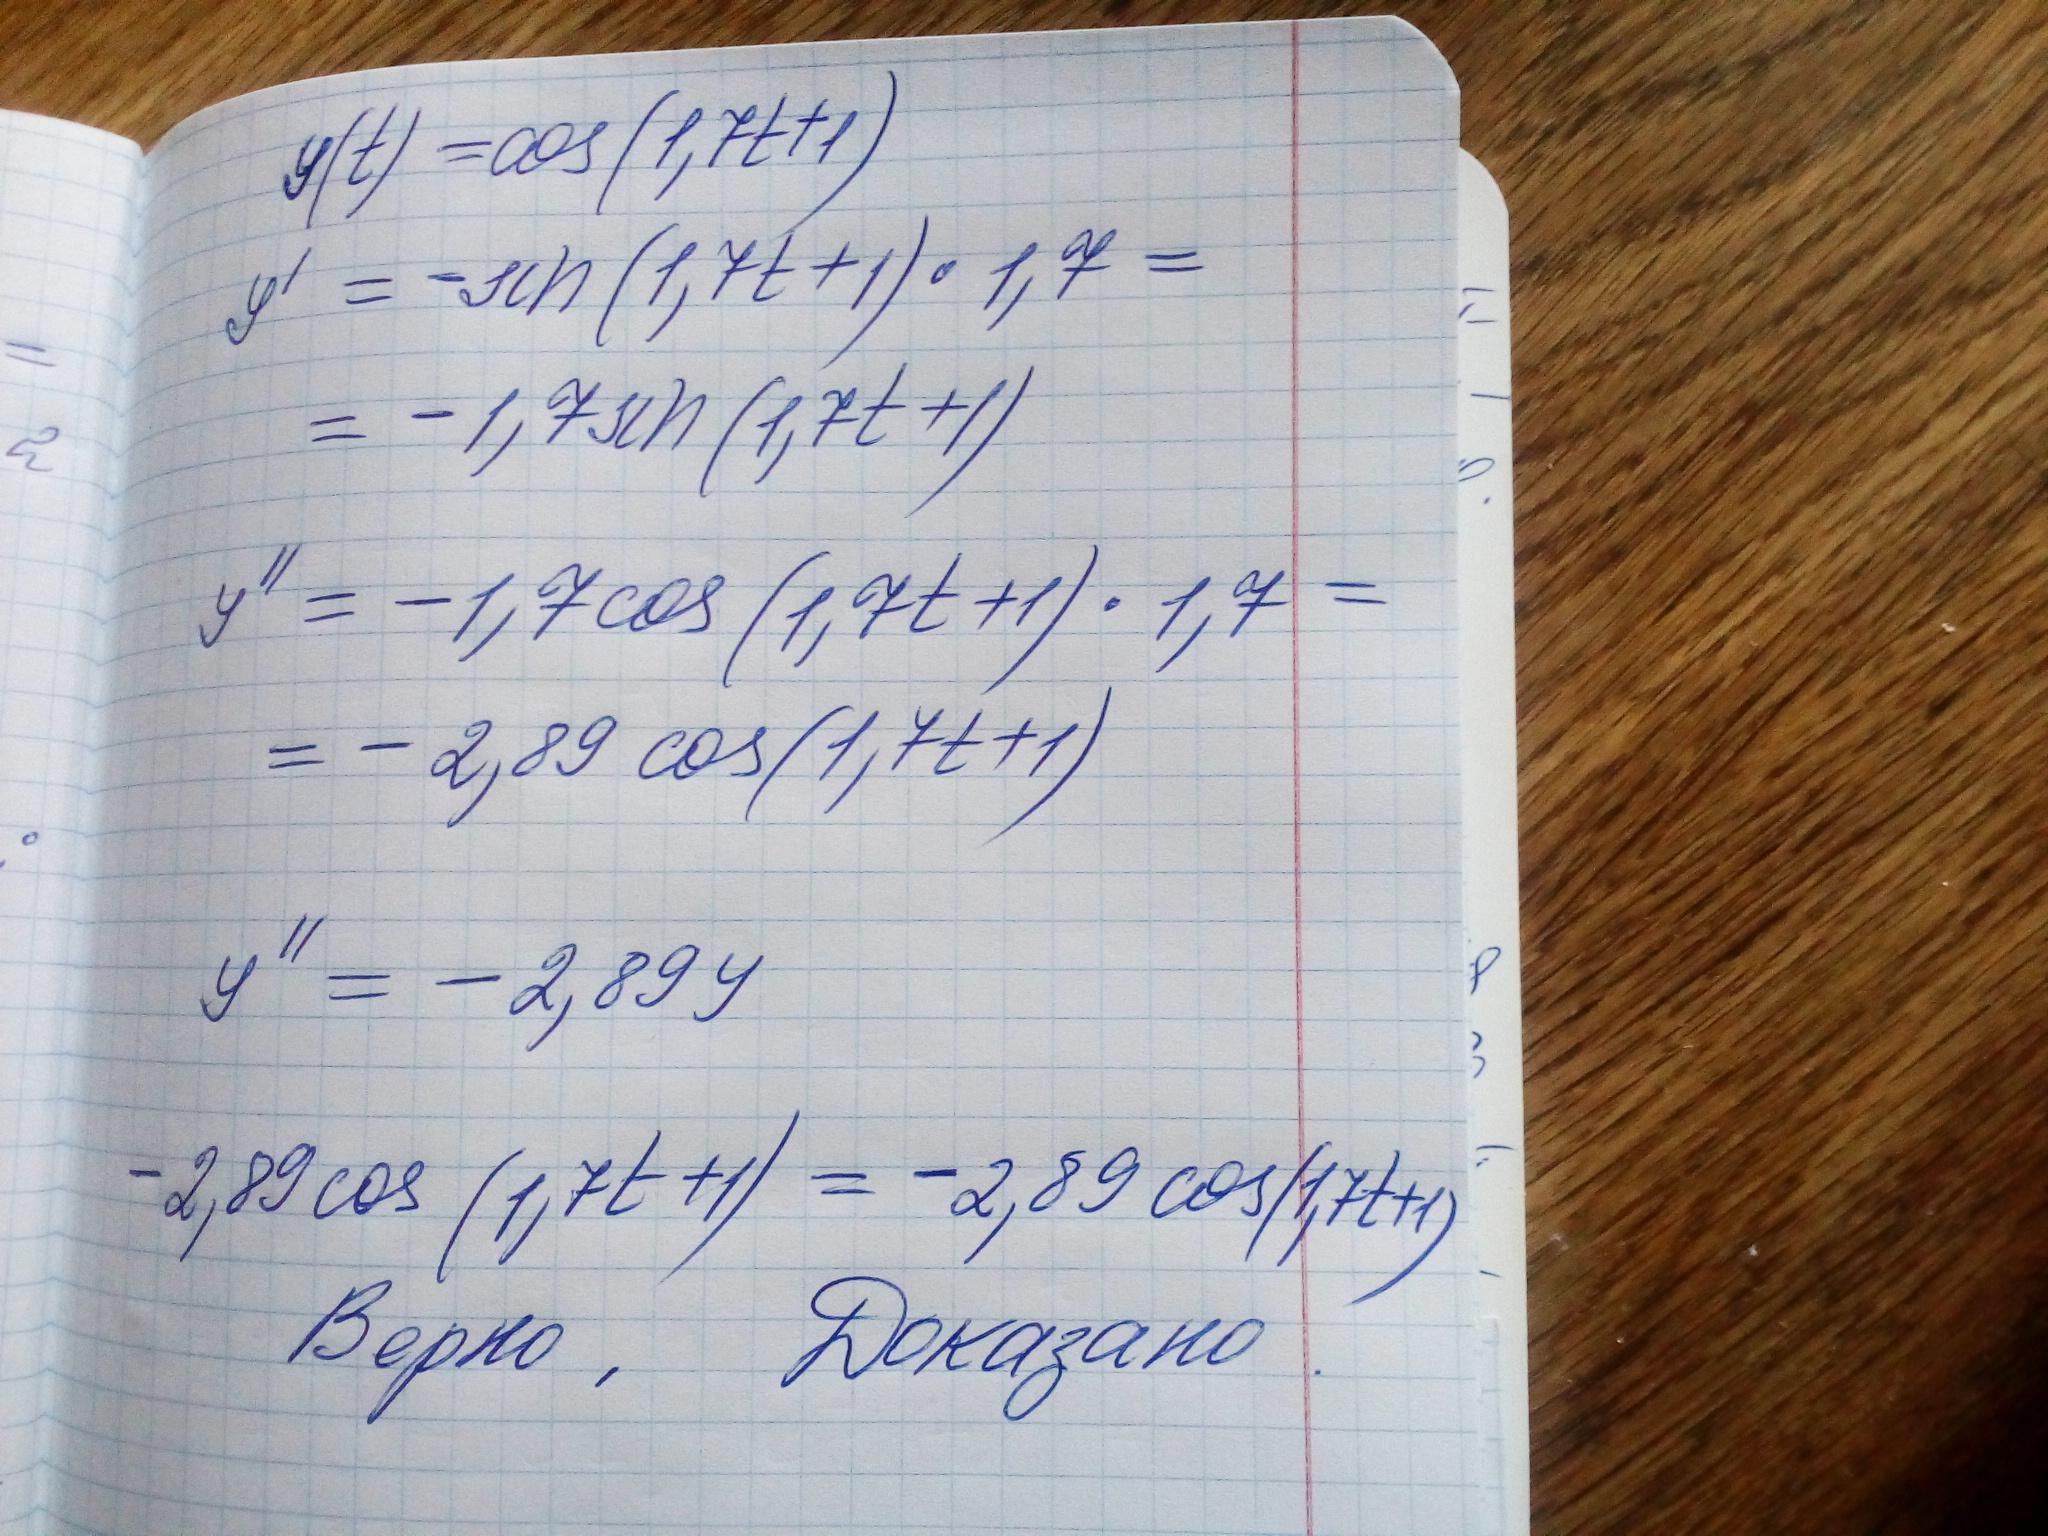 y(t) = cos(1,7t+1)
y' = -sin(1,7t+1)·1,7 =
= -1,7sin(1,7t+1)
y'' = -1,7cos(1,7t+1)·1,7 =
= -2,89 cos(1,7t+1)
y'' = -2,89y
-2,89cos(1,7t+1) = -2,89 cos(1,7t+1)
Верно, Доказано.